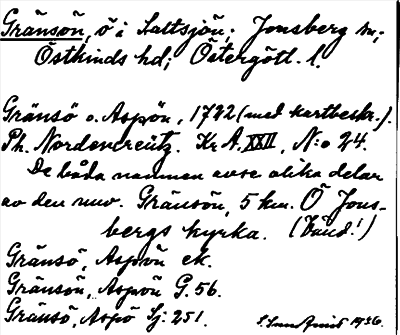 Gränsön, ö i Saltsjön; Jonsberg sn;
Östkinds hd; Östergötl. l.
Gränsö o. Aspön, 1722 (med kartbeskr.).
Ph. Nordencreütz. Kr A. XXII, N:o 24.
De båda namnen avse olika delar
av den nuv. Gränsön, 5 km. Ö Jons-
bergs kyrka. (Vänd!)
Gränsö, Aspön ek.
Gränsön, Aspön G. 56.
Gränsö, Aspö Sj: 251.
1936.